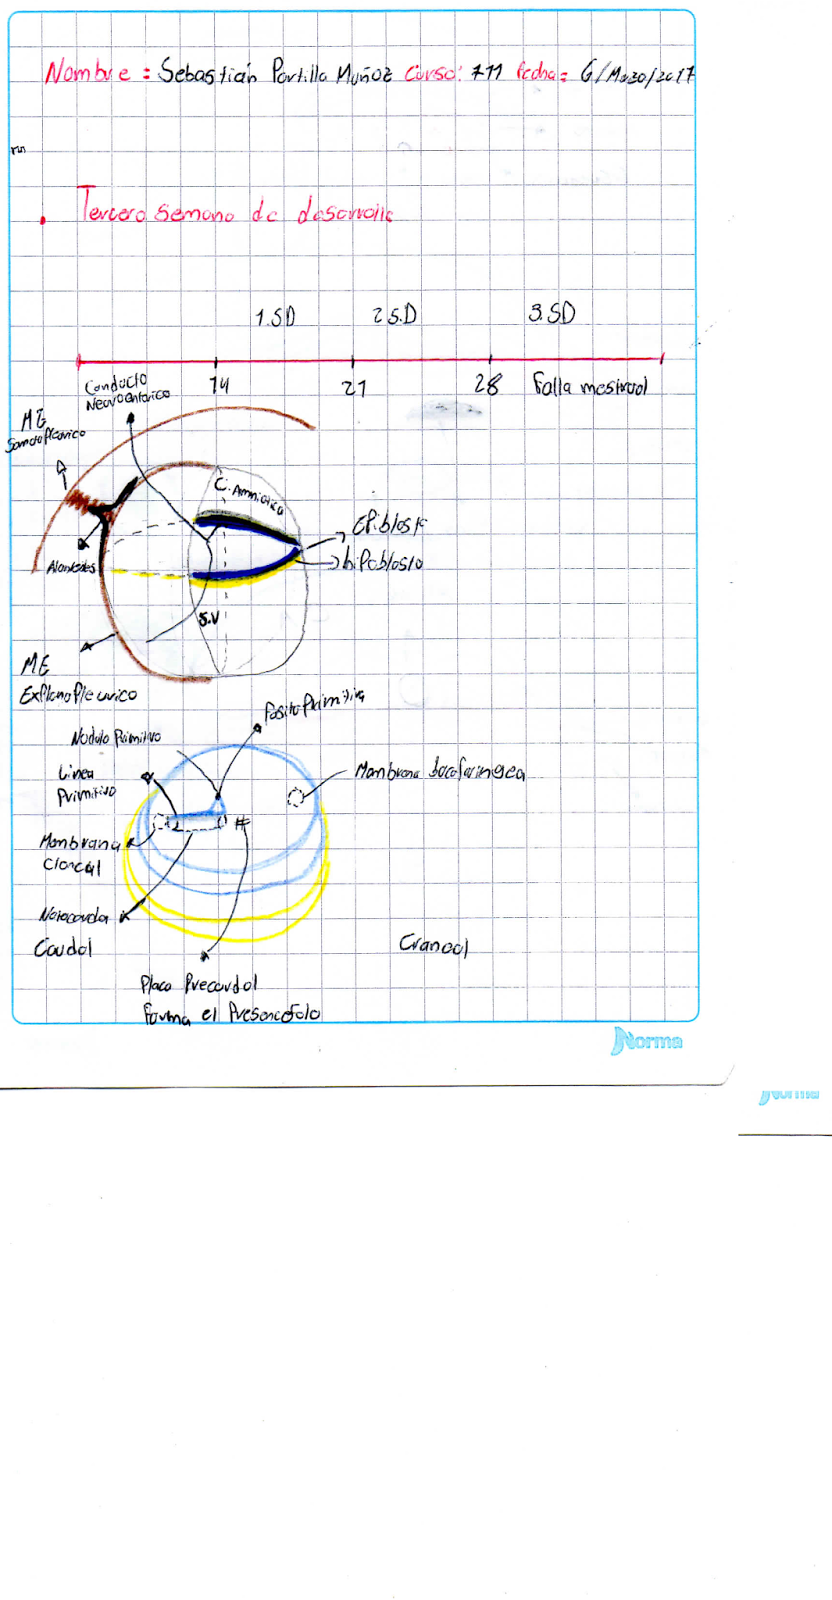 Nombre : Sebastián Portilla Muñoz Curso: 711 fecha: 6/Marzo/2017
Tercera Semana de desarrollo
1.SD 2S.D 3.SD
14 21 28 Falla mestrual
Conducto
Neuroenterico
ME
Somatopleurico
C. Amniotica
Epiblasto
hipoblasto
Alantoides
S.V
ME
Explanopleurico
Fosita Primitiva
Nodulo Primitivo
Linea
Primitiva
Membrana bucofaringea
Membrana
Cloacal
Notocorda
Caudal
Craneal
Placa Precordal
forma el Presencefalo
Norma
Norma